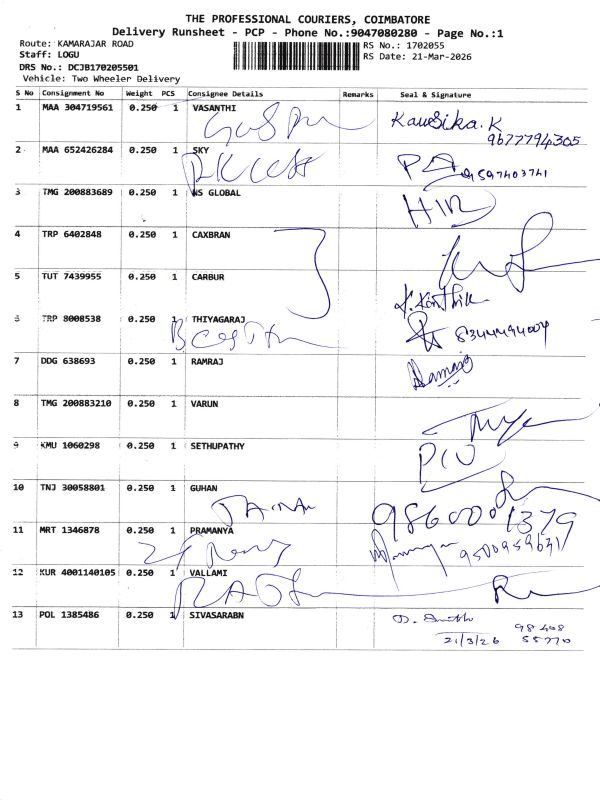 THE PROFESSIONAL COURIERS, COIMBATORE
Delivery Runsheet - PCP - Phone No.:9047080280 - Page No.:1
Route: KAMARAJAR ROAD
RS No.: 1702055
Staff: LOGU
RS Date: 21-Mar-2026
DRS No.: DCJB170205501
Vehicle: Two Wheeler Delivery
S No Consignment No Weight PCS Consignee Details Remarks Seal & Signature
1 MAA 304719561 0.250 1 VASANTHI Kausika.K
9677794305
2 MAA 652426284 0.250 1 SKY
9597403741
3 TMG 200883689 0.250 1 NS GLOBAL
4 TRP 6402848 0.250 1 CAXBRAN
5 TUT 7439955 0.250 1 CARBUR
K.Karthik
6 TRP 8008538 0.250 1 THIYAGARAJ
8344494004
7 DDG 638693 0.250 1 RAMRAJ
8 TMG 200883210 0.250 1 VARUN
9 KMU 1060298 0.250 1 SETHUPATHY
10 TNJ 30058801 0.250 1 GUHAN
11 MRT 1346878 0.250 1 PRAMANYA
12 KUR 4001140105 0.250 1 VALLAMI
13 POL 1385486 0.250 1 SIVASARABN
98408
21/3/26 55770